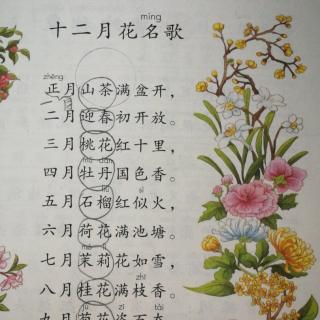 míng
十二月花名歌
zhēng
正月山茶满盆开，
二月迎春初开放。
三月桃花红十里，
mǔ dān
四月牡丹国色香。
liú sì
五月石榴红似火，
六月荷花满池塘。
mò lì
七月茉莉花如雪，
zhī
八月桂花满枝香。
jú zī
九月菊花姿百态，